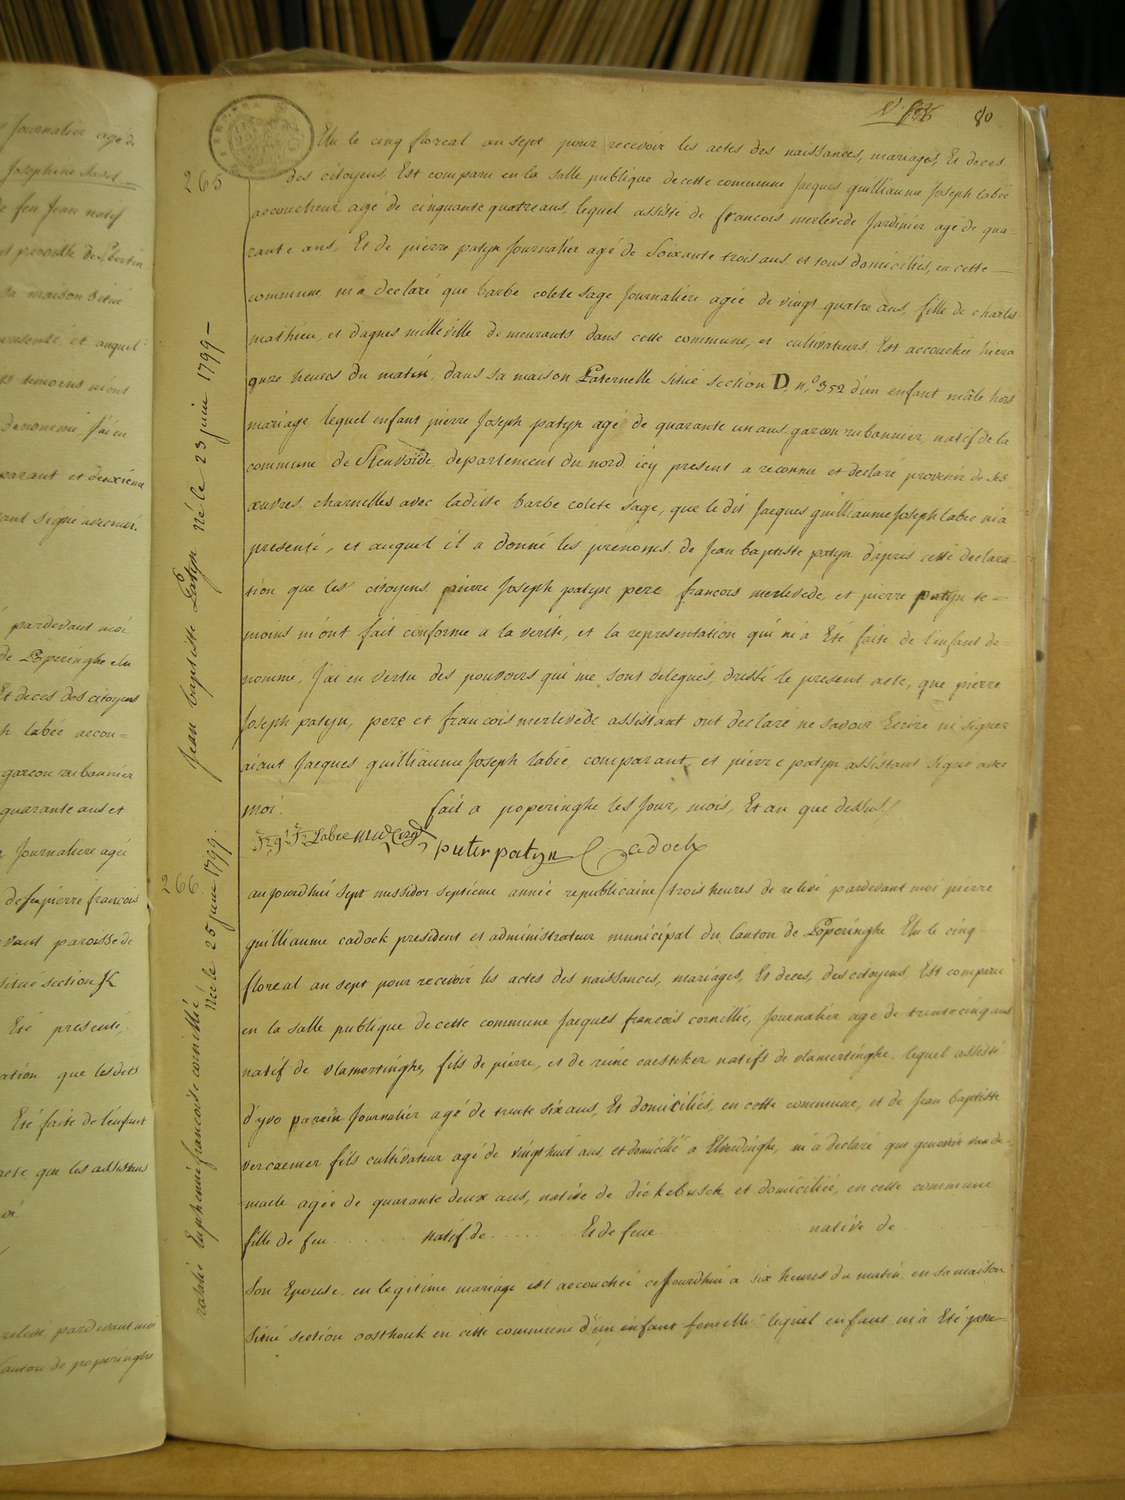 journalier agé de
Josephine
de feu Jean natif
sa maison situé
presenté, et auquel
temoins m'ont
denommé, j'ai en
parant et deuxième
ant signé avec moi.
pardevant moi
de Poperinghe elu
Et deces des citoyens
labée accou=
garcon rubannier
quarante ans et
Journaliere agée
de feu pierre françois
paroisse de
situé section
Eté presenté,
ation que lesdits
Eté faite de l'enfant
acte que les assistans
relivé pardevant moi
Canton de poperinghe
80
Elu le cinq floreal an sept pour recevoir les actes des naissances, mariages, Et deces
265
des citoyens, Est comparu en la salle publique de cette commune Jacques guilliaume Joseph labée
accoucheur agé de cinquante quatre ans, lequel assisté de francois merlevede Jardinier agé de qua-
rante ans, Et de piérre patyn Journalier agé de Soixante trois ans et tous domiciliés, en cette —
commune m'a declaré que barbe colete sage Journaliere agée de vingt quatre ans, fille de charles
mathieu, et d'agnes milleville demeurants dans cette commune, et cultivateurs Est accouchée hier a
onze heures du matin, dans sa maison Paternelle situé section D. n.º 352 d'un enfant mâle hors
mariage lequel enfant pierre Joseph patyn agé de quarante un ans garcon rubannier natif de la
commune de Stenvoïde departement du nord icy present a reconnu et declaré provenir de ses
œuvres charnelles avec laditte barbe colete sage, que le dit Jacques guilliaume Joseph labée m'a
presenté, et auquel il a donné les prenoms de Jean baptiste patyn d'après cette declara-
tion que les citoyens pierre Joseph patyn pere francois merlevede, et pierre patyn te—
moins m'ont fait conforme a la verité, et la representation qui m'a Eté faite de l'enfant de-
nommé, J'ai en vertu des pouvoirs qui me sont delegués, dressé le present acte, que pierre
Joseph patyn, pere et francois merlevede assistant ont declaré ne savoir Ecrire ni signer
aiant Jacques guilliaume Joseph labée comparant et pierre patyn assistant signé avec
moi. fait a poperinghe les Jour, mois, Et an que dessus/
Jean baptiste Patyn Né le 23 juin 1799 —
Labee
pieter patyn Cadock
266.
aujourdhui sept messidor septieme année republicaine trois heures de relivé pardevant moi pierre
guilliaume cadock president et administrateur municipal du Canton de Poperinghe Elu le cinq
floreal an sept pour recevoir les actes des naissances, mariages, Et deces, des citoyens, Est comparu
en la salle publique de cette commune Jacques francois cornillie, Journalier agé de trente cinq ans
natif de vlamertinghe, fils de pierre, et de reine caesteker natifs de vlamertinghe lequel assisté
d'yvo parein Journalier agé de trente six ans, Et domiciliés, en cette commune, et de Jean baptiste
vercaemer fils cultivateur agé de vingt huit ans et domicilié a Elverdinghe, m'a declaré que genevieve van de-
maele agée de quarante deux ans, native de dickebusch et domiciliée, en cette commune
fille de feu . . . . . . natif de . . . . . . Et de feue . . . . . . native de
son Epouse en legitime mariage est accouchée ce Jourdhui a six heures du matin en sa maison
Situé section oosthouk en cette commune d'un enfant femelle lequel enfant m'a Eté prese—
natalie Euphemie francoise cornillie
Née le 25 juin 1799.